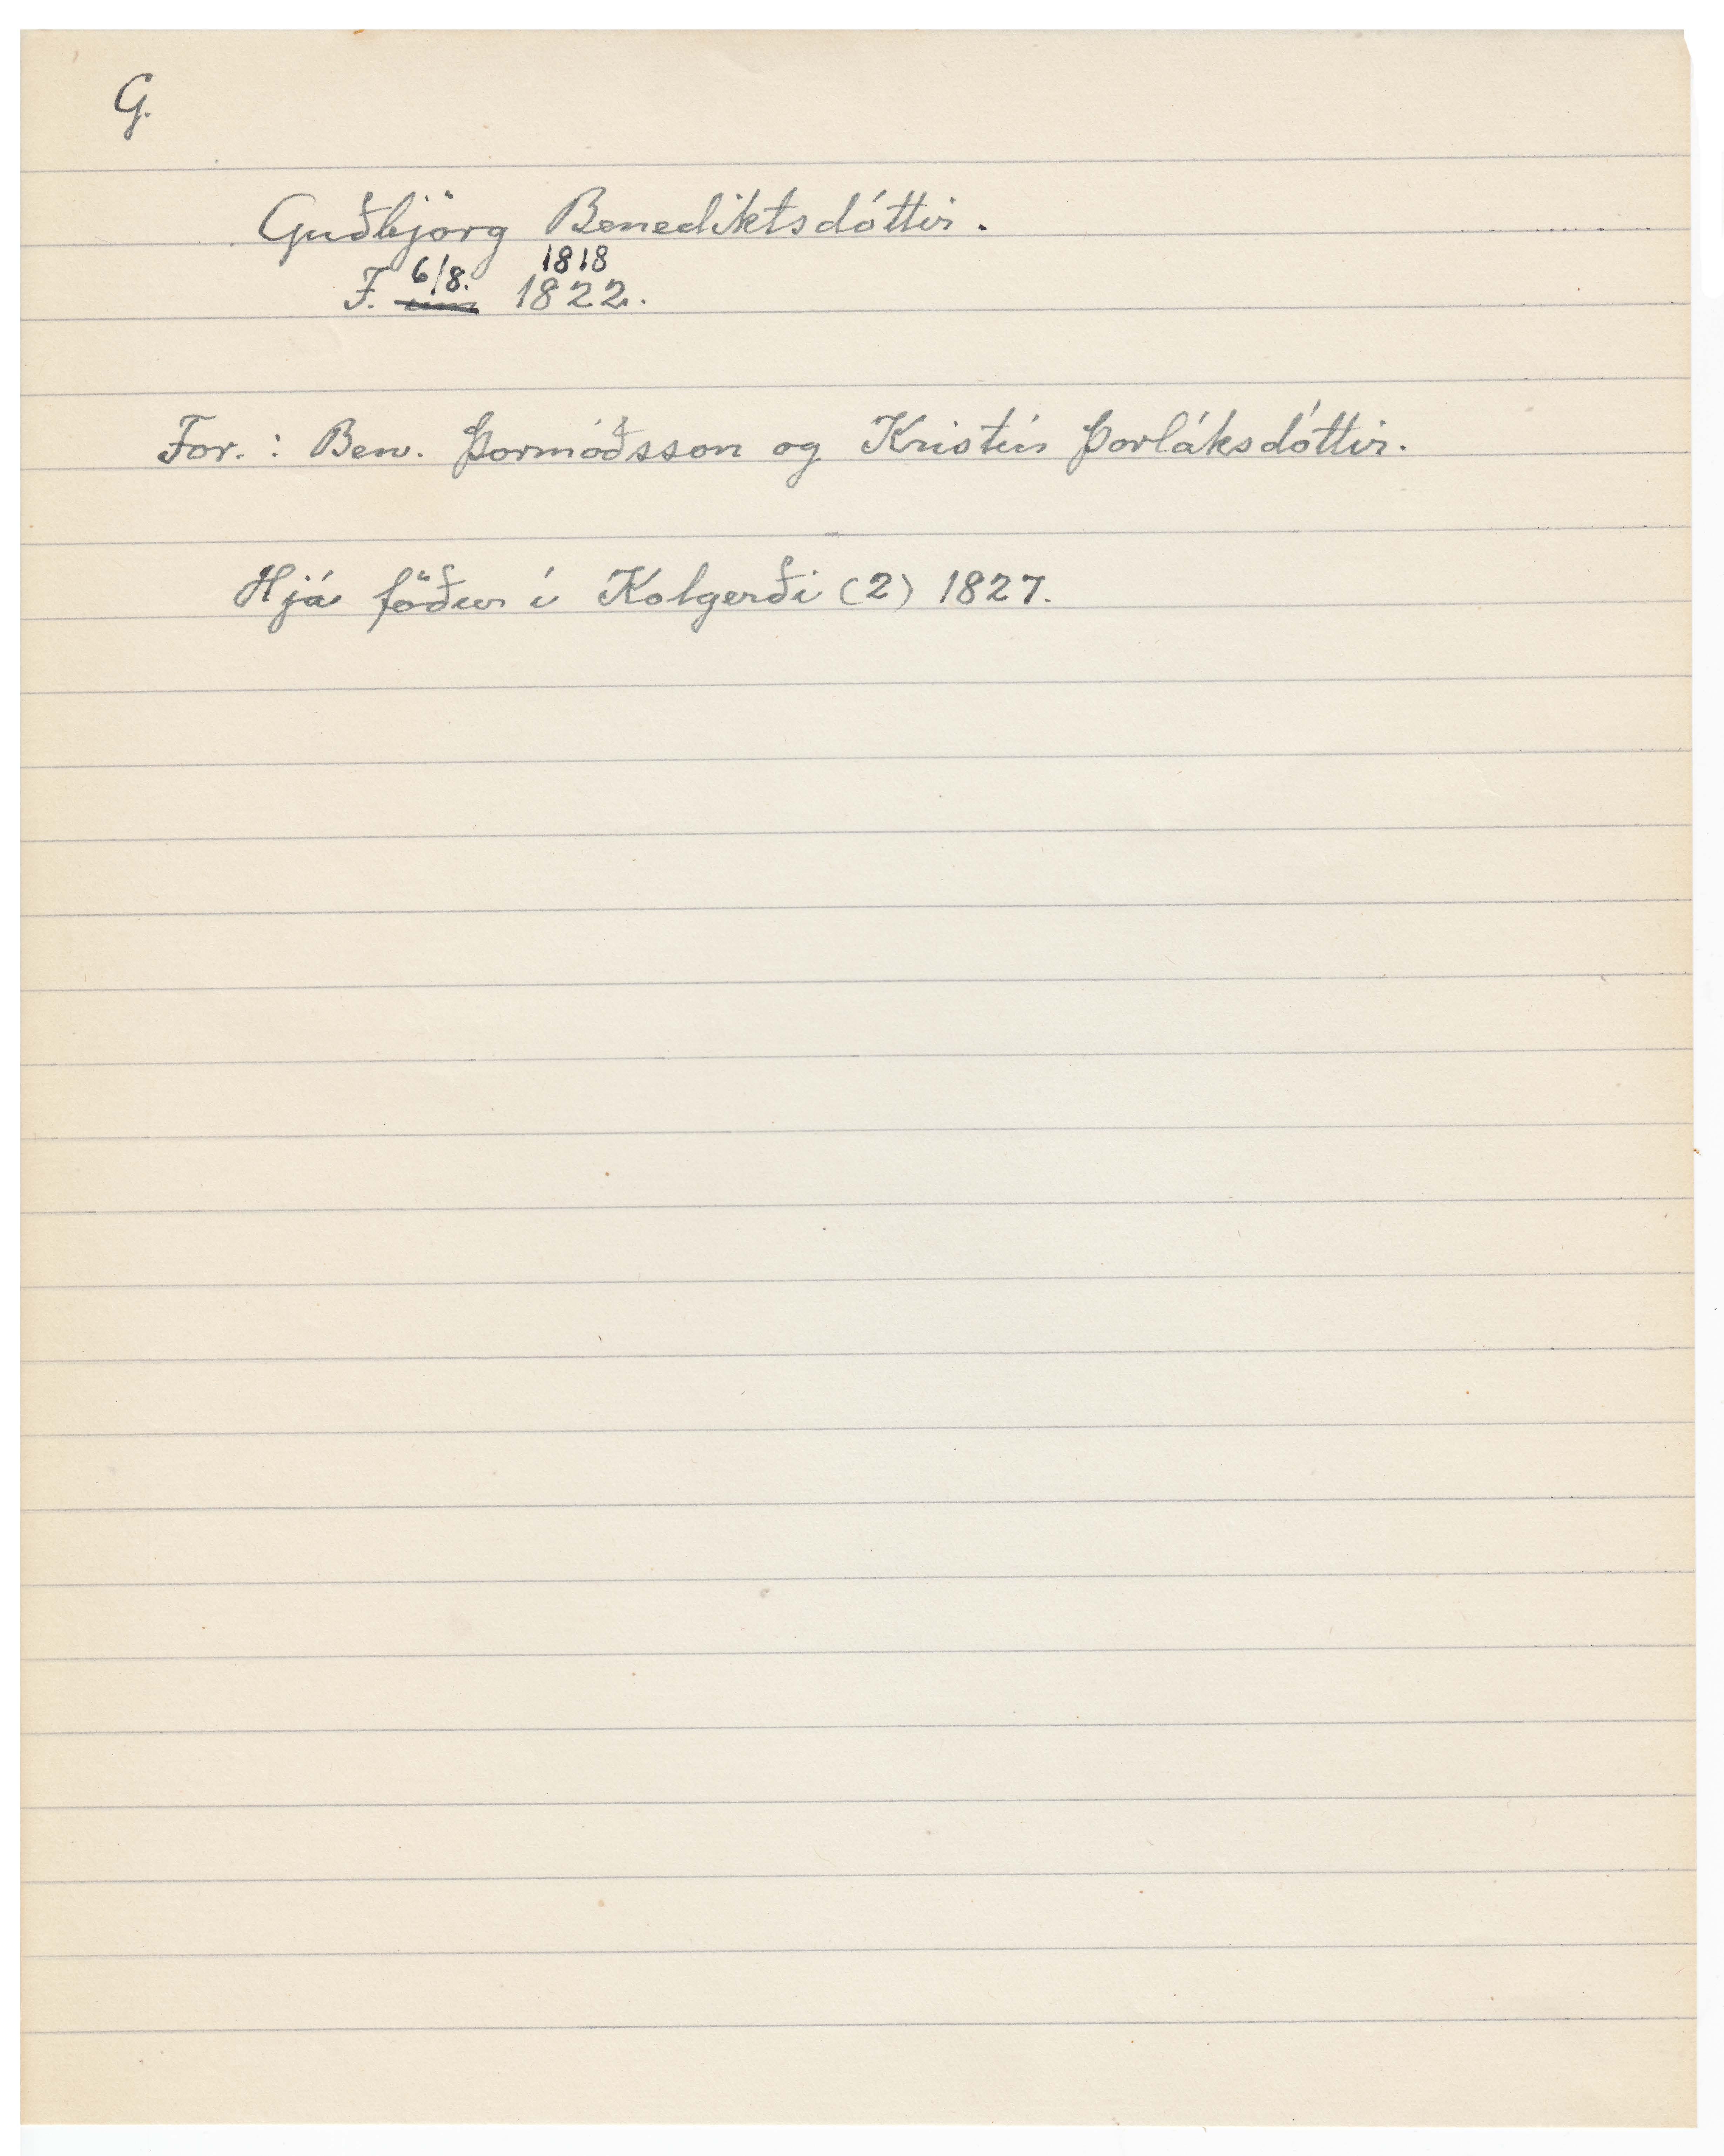 G.
Guðbjörg Benediktsdóttir.
6/8. 1818
F. 1822.
For.: Ben. Þormóðsson og Kristín Þorláksdóttir.
Hjá föður í Kolgerði (2) 1827.